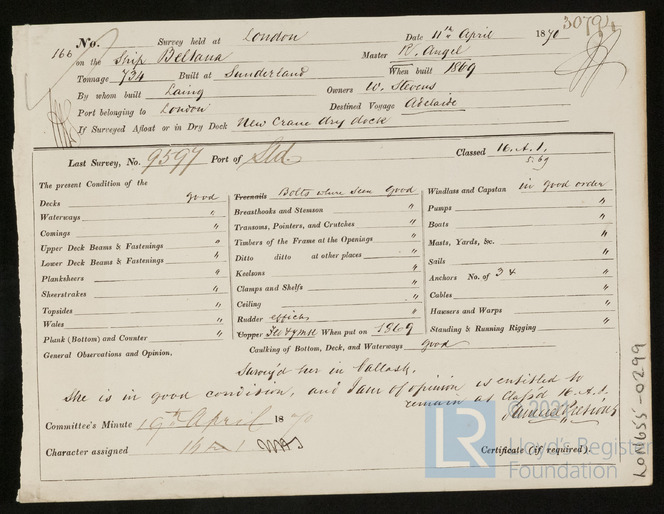 30791
166 No. Survey held at London Date 11th April 1870
on the Ship Beltana Master R. Angel
Tonnage 734 Built at Sunderland When built 1869
By whom built Laing Owners W. Stevens
Port belonging to London Destined Voyage Adelaide
If Surveyed Afloat or in Dry Dock New Crane dry dock
Last Survey, No. 9597 Port of Sld. Classed 16. A. 1.
5.69
The present Condition of the
Decks good
Waterways "
Comings "
Upper Deck Beams & Fastenings "
Lower Deck Beams & Fastenings "
Planksheers "
Sheerstrakes "
Topsides "
Wales "
Plank (Bottom) and Counter "
General Observations and Opinion,
Treenails Bolts where seen good
Breasthooks and Stemson "
Transoms, Pointers, and Crutches "
Timbers of the Frame at the Openings "
Ditto ditto at other places "
Keelsons "
Clamps and Shelfs "
Ceiling "
Rudder efficient
Copper When put on 1869
Caulking of Bottom, Deck, and Waterways good
Windlass and Capstan in good order
Pumps "
Boats "
Masts, Yards, &c. "
Sails "
Anchors No. of 3 4 "
Cables "
Hawsers and Warps "
Standing & Running Rigging "
Survey'd her in ballast.
She is in good condition, and I am of opinion is entitled to
remain as class'd 16. A. 1.
Samuel
Committee's Minute 19th April 1870
Character assigned 16 A 1
Certificate (if required).
LON655-0299
LR
© 2021
Lloyd's Register
Foundation